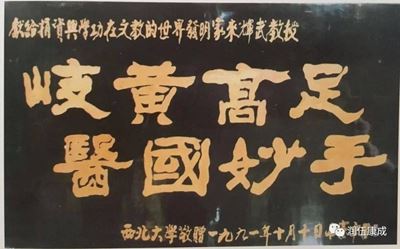 獻給捐資興学功在文教的世界發明家來輝武教授
岐黄高足
醫國妙手
西北大学敬贈一九九一年十月十日
润伍康成